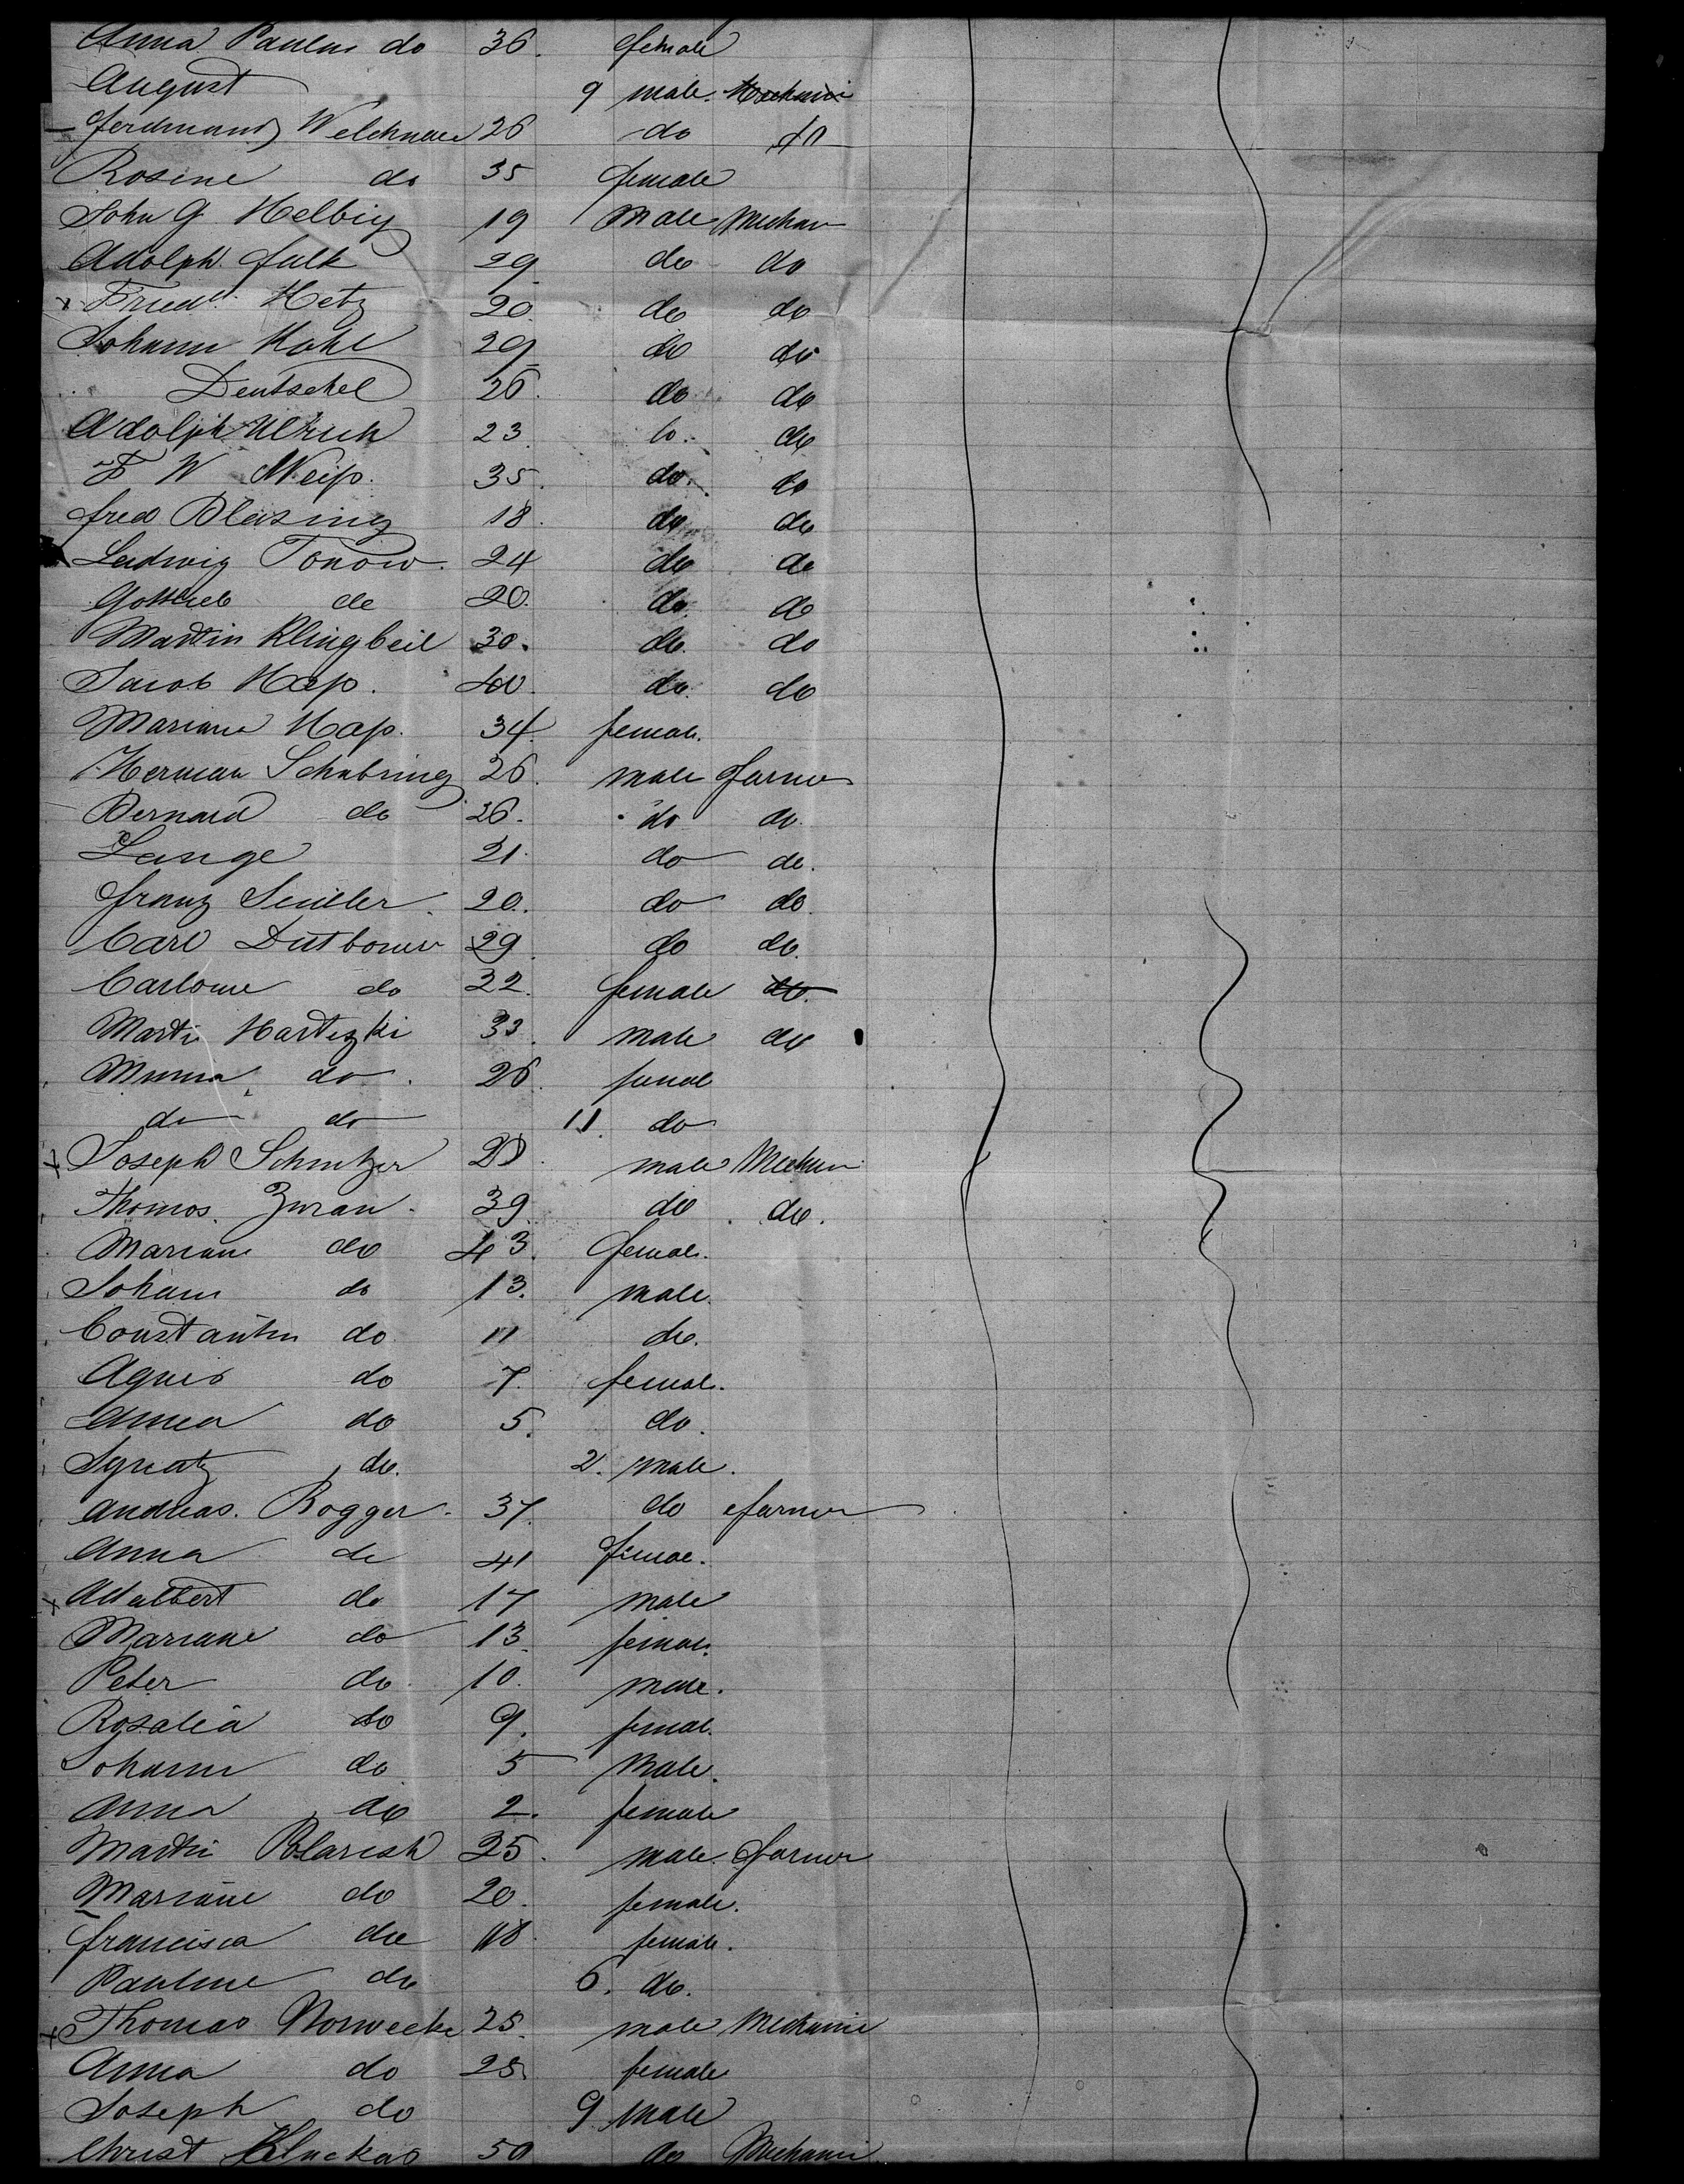 Anna Paulus do 36. female
August 9 male. Mechanic
Ferdinand 26 do do
Rosine do 35 female
John G Helbig 19 Male Mechan
Adolph Falk 29 do do
Friedr. Hetz 20. do do
Johann Kohl 29 do do
Deutschel 26. do do
Adolph Ulrich 23. do. do
F W Neip. 35. do. do
Fred Blasing 18. do do
Ludwig Tonow. 24 do do
Gottlieb do 20. do. do
Martin Klingbeil 30. do. do
Jacob Hap. 40. do. do
Mariane Hap. 34. femal.
Herman Schubring 26. male Farmer
Bernard do 26. do do.
Lange 21. do do.
Franz 20. do do.
Carl 29. do do.
Carloine do 22. female do.
Martin 33. male do
do. 26. femal
do do 11. do
Joseph Schnitzer male Mechan
Thomas. Zuran. 39. do do.
Mariane do 43. femal.
Johann do 13. male.
Constantin do 11 do.
Agnes do 7. femal.
Anna do 5. do.
Ignatz do. 2. male.
Andreas. Rogger. 37. do Farmer
Anna do 41 femal.
Adalbert do 17 male
Mariane do 13. femal.
Peter do. 10. male.
Rosalia do 9. femal.
Johann do 5 male.
Anna do 2. female
Martin Polarish 25. male. Farmer
Mariane do 20. female.
Francisca do 18. female.
Pauline do 6. do.
Thomas Norwecke 25. male Mechanic
Anna do 28. female
Joseph do 9 male
Christ Kluckas 50 do Mechanic